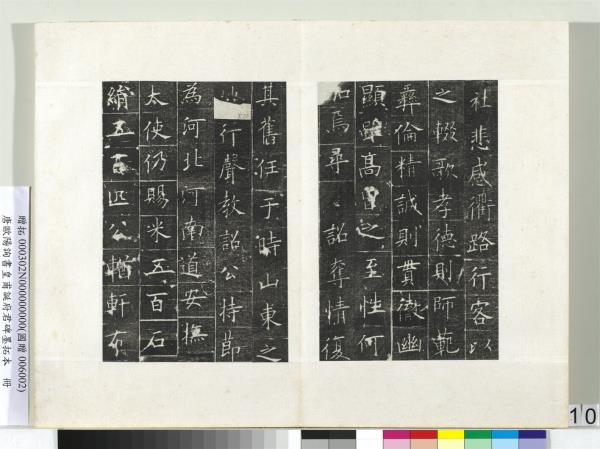 社悲感衢路行客以
之輟歌孝德則師範
彝倫精誠則貫徹幽
顯雖高之至性何
加焉尋詔奪情復
其舊任于時山東之
行聲教詔公持節
為河北河南道安撫
大使仍賜米五百石
絹五百匹公輶軒布
贈拓 000302N000000000(國贈 006002)
唐歐陽詢書皇甫誕府君碑墨拓本 冊
10